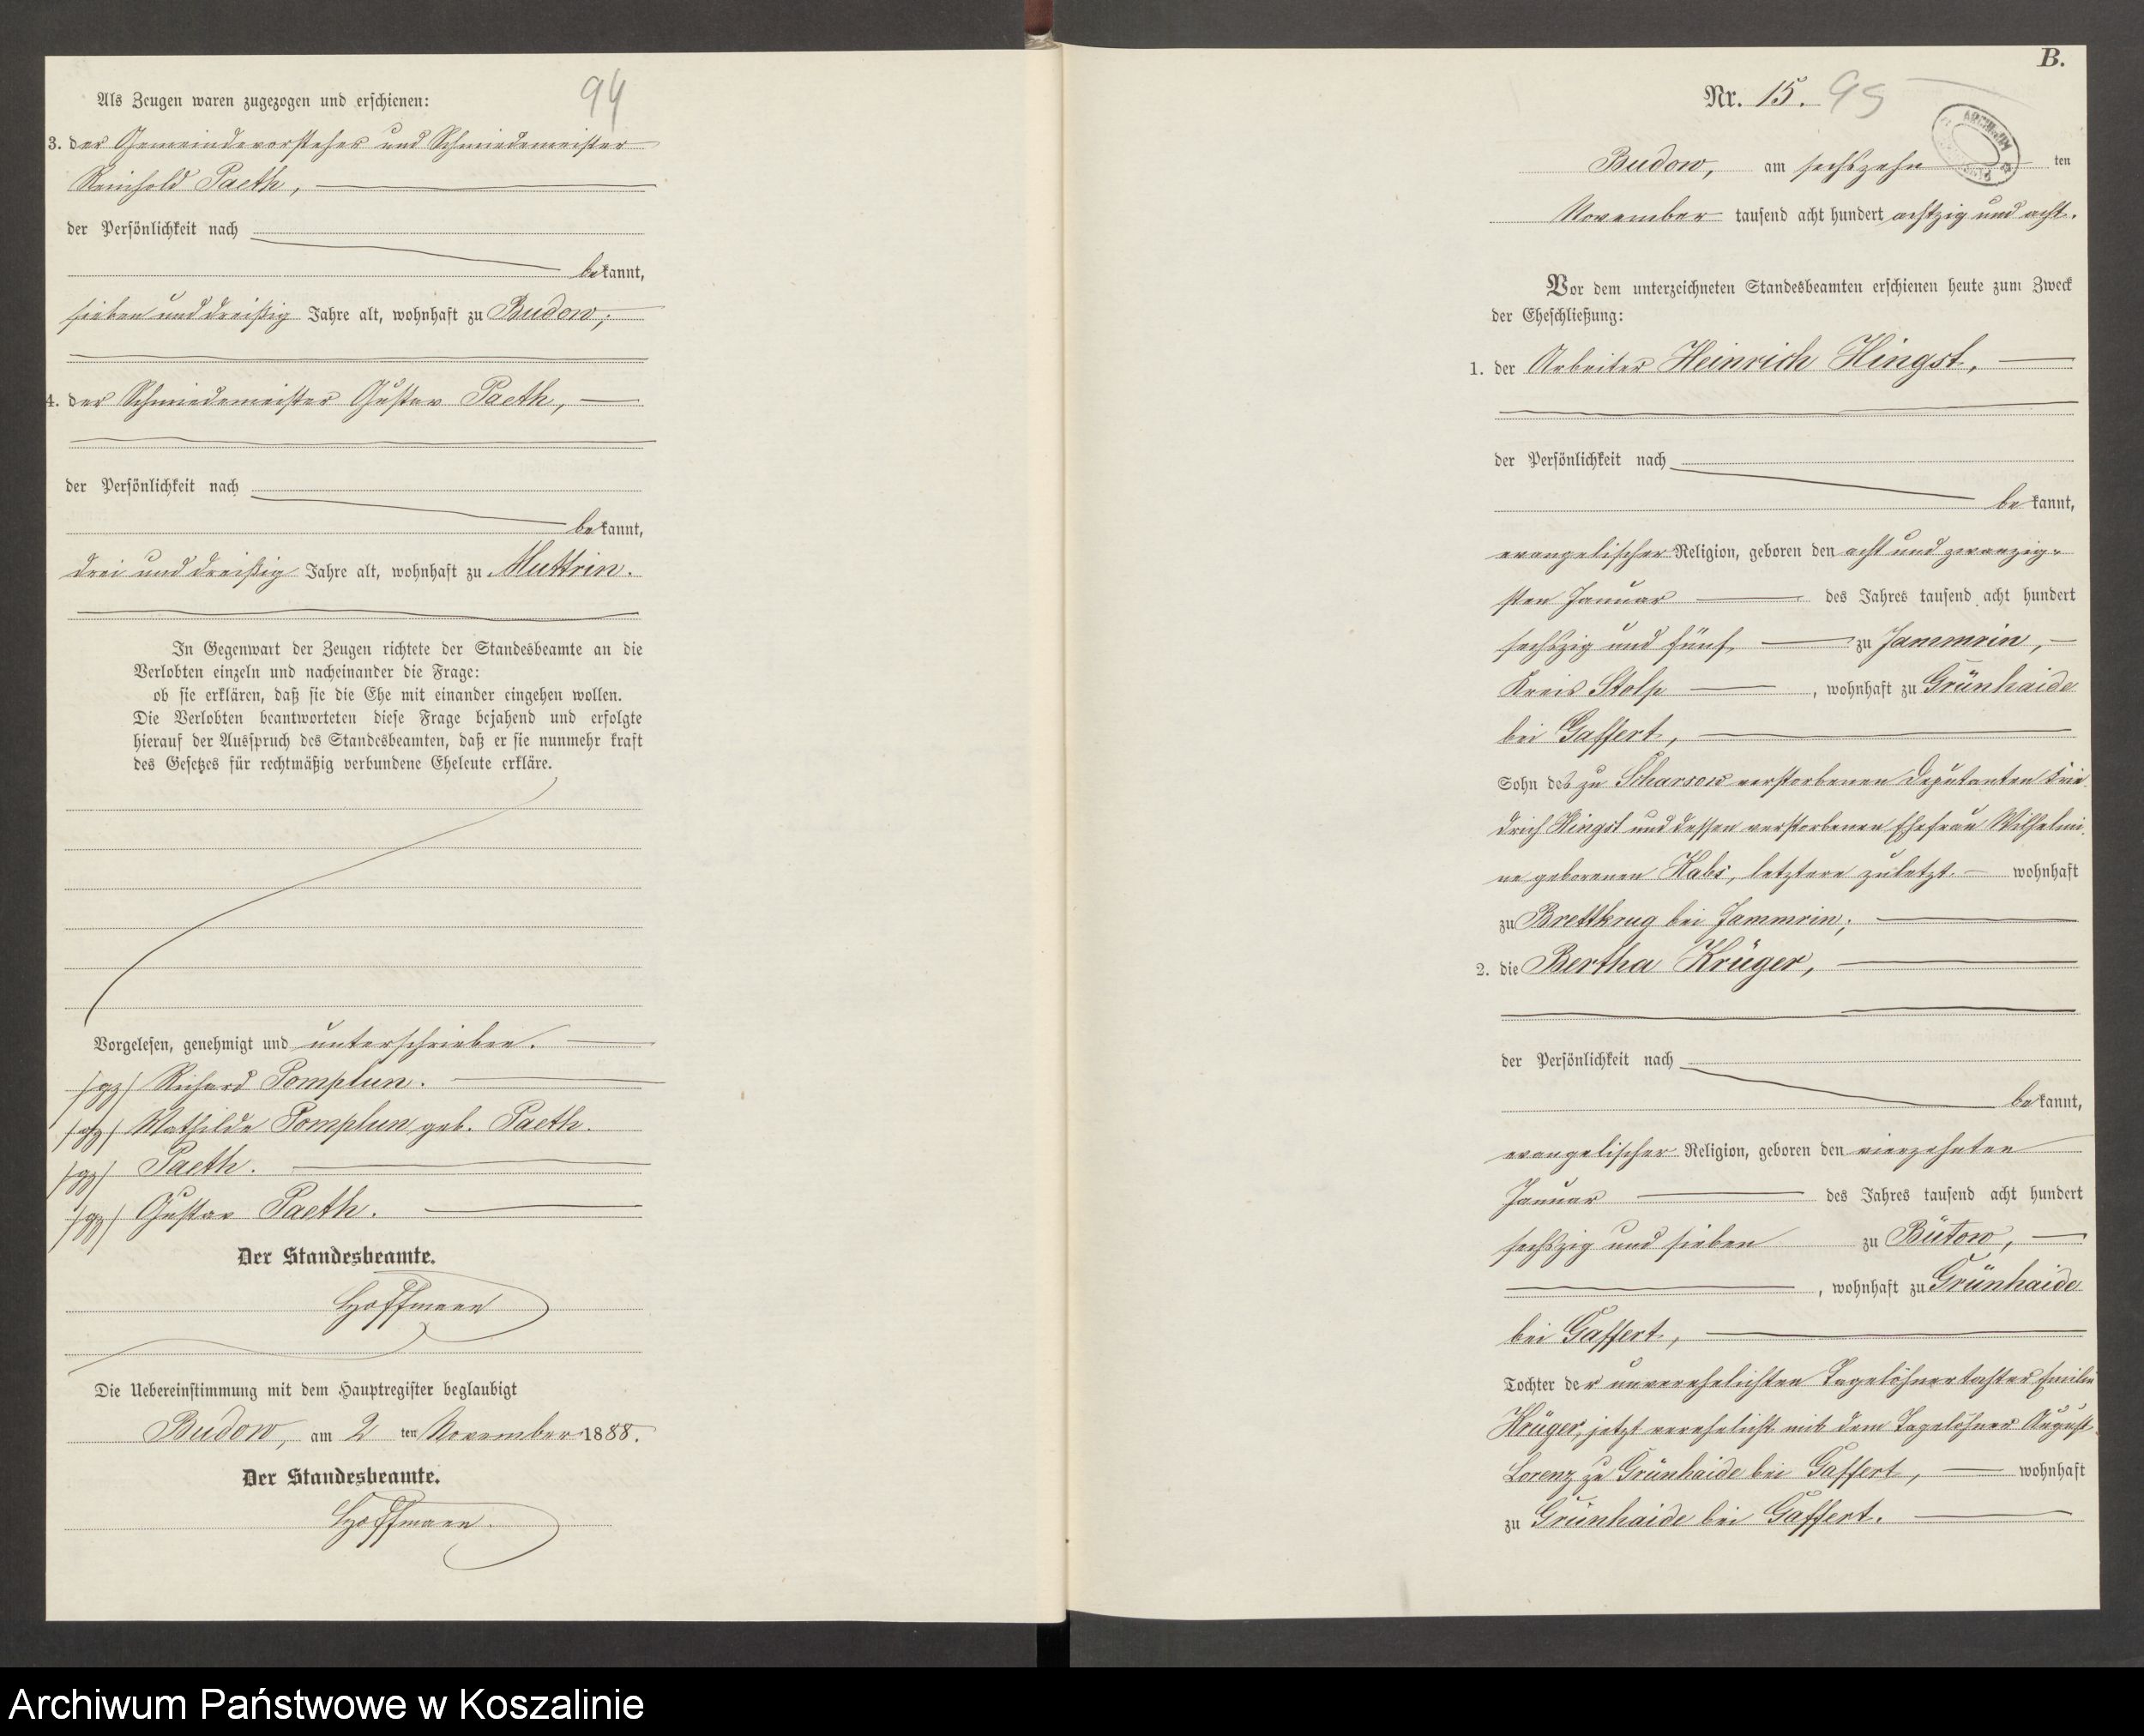 94
Als Zeugen waren zugezogen und erschienen:
3. der Gemeindevorsteher und Schmiedemeister
Reinhold Paeth,
der Persönlichkeit nach
bekannt,
sieben und dreißig Jahre alt, wohnhaft zu Budow;
4. der Schmiedemeister Gustav Paeth,
der Persönlichkeit nach
bekannt,
drei und dreißig Jahre alt, wohnhaft zu Muttrin.
In Gegenwart der Zeugen richtete der Standesbeamte an die
Verlobten einzeln und nacheinander die Frage:
ob sie erklären, daß sie die Ehe mit einander eingehen wollen.
Die Verlobten beantworteten diese Frage bejahend und erfolgte
hierauf der Ausspruch des Standesbeamten, daß er sie nunmehr kraft
des Gesetzes für rechtmäßig verbundene Eheleute erkläre.
Vorgelesen, genehmigt und unterschrieben.
/gz/ Richard Pomplun.
/gz/ Mathilde Pomplun geb. Paeth.
/gz/ Paeth.
/gz/ Gustav Paeth.
Der Standesbeamte.
Hoffmann
Die Uebereinstimmung mit dem Hauptregister beglaubigt
Budow, am 2 ten November 1888.
Der Standesbeamte.
Hoffmann.
B.
Nr. 15. 95
ARCHIWUM
Budow, am sechszehn ten
November tausend acht hundert achtzig und acht.
Vor dem unterzeichneten Standesbeamten erschienen heute zum Zweck
der Eheschließung:
1. der Arbeiter Heinrich Hingst,
der Persönlichkeit nach
bekannt,
evangelischer Religion, geboren den acht und zwanzig-
sten Januar des Jahres tausend acht hundert
sechszig und fünf zu Jammrin,
Kreis Stolp, wohnhaft zu Grünhaide
bei Gaffert,
Sohn des zu Scharsow verstorbenen Deputanten Frie-
drich Hingst und dessen verstorbenen Ehefrau Wilhelmi-
ne geborenen Kabs, letztere zuletzt wohnhaft
zu Brettkrug bei Jammrin;
2. die Bertha Krüger,
der Persönlichkeit nach
bekannt,
evangelischer Religion, geboren den vierzehnten
Januar des Jahres tausend acht hundert
sechszig und sieben zu Bütow,
, wohnhaft zu Grünhaide
bei Gaffert,
Tochter der unverehelichten Tagelöhnertochter Emilie
Krüger, jetzt verehelicht mit dem Tagelöhner August
Lorenz zu Grünhaide bei Gaffert, wohnhaft
zu Grünhaide bei Gaffert.
Archiwum Państwowe w Koszalinie